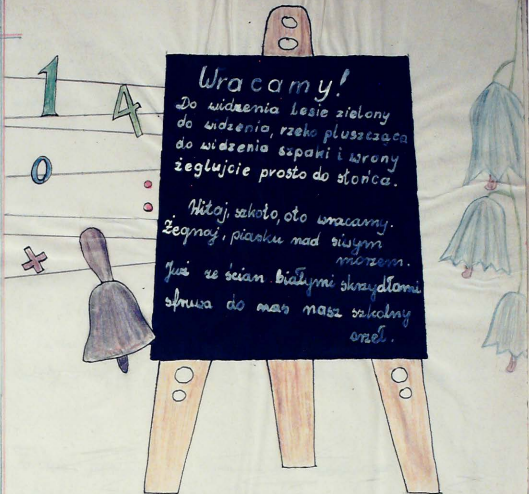 1
4
0
+
Wracamy!
Do widzenia lesie zielony
do widzenia, rzeko pluszcząca
do widzenia szpaki i wrony
żeglujcie prosto do słońca.
Witaj, szkoło, oto wracamy.
Żegnaj, piasku nad siwym
morzem.
Już ze ścian białymi skrzydłami
sfruwa do nas nasz szkolny
orzeł.